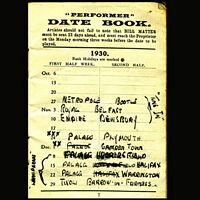 "PERFORMER"
DATE BOOK.
Artistes should not fail to note that BILL MATTER
must be sent 21 days ahead, and must reach the Proprietor
on the Monday morning three weeks before the date to be
played.
1930.
Bank Holidays are marked
FIRST HALF WEEK. SECOND HALF.
Oct. 6
13
20
27 METROPOLE BOOTLE
Nov. 3 ROYAL BELFAST
10 EMPIRE
XXX PALACE PLYMOUTH
XX
Dec. CAMDEN TOWN
8 PALACE
15 PALACE
22 PALACE WARRINGTON
29 TIVOLI BARROW-IN-FURNESS